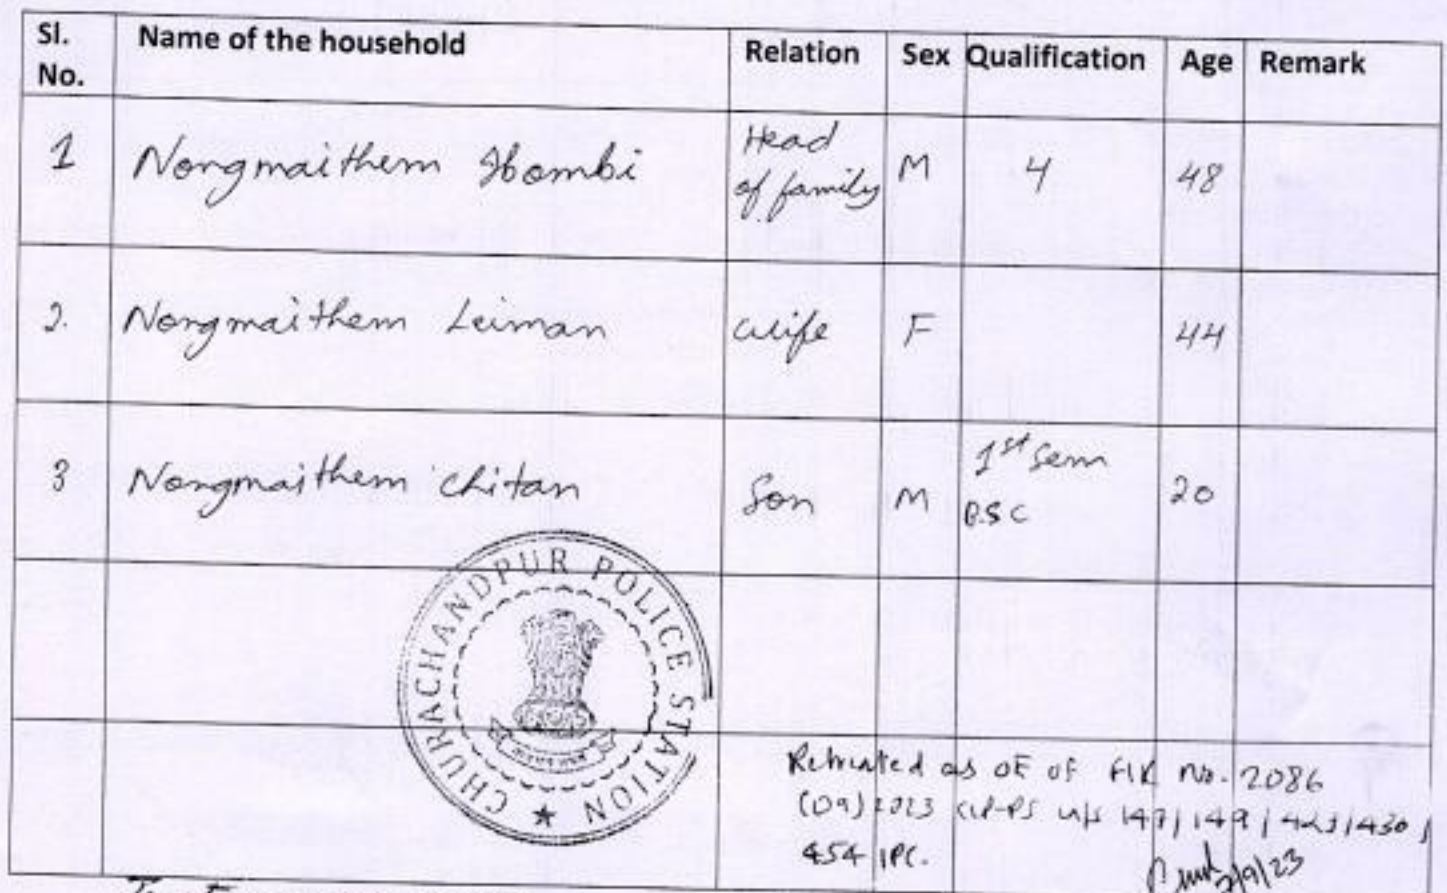 Sl. No. Name of the household Relation Sex Qualification Age Remark
1 Nongmaithem Ibombi Head of family M 4 48
2. Nongmaithem Leiman wife F 44
3 Nongmaithem Chitan Son M 1st Sem B.SC 20
CHURACHANDPUR POLICE STATION
as OE of FIR No. 2086
(09) 2023 CCP-PS u/s 147/149/
454 IPC.